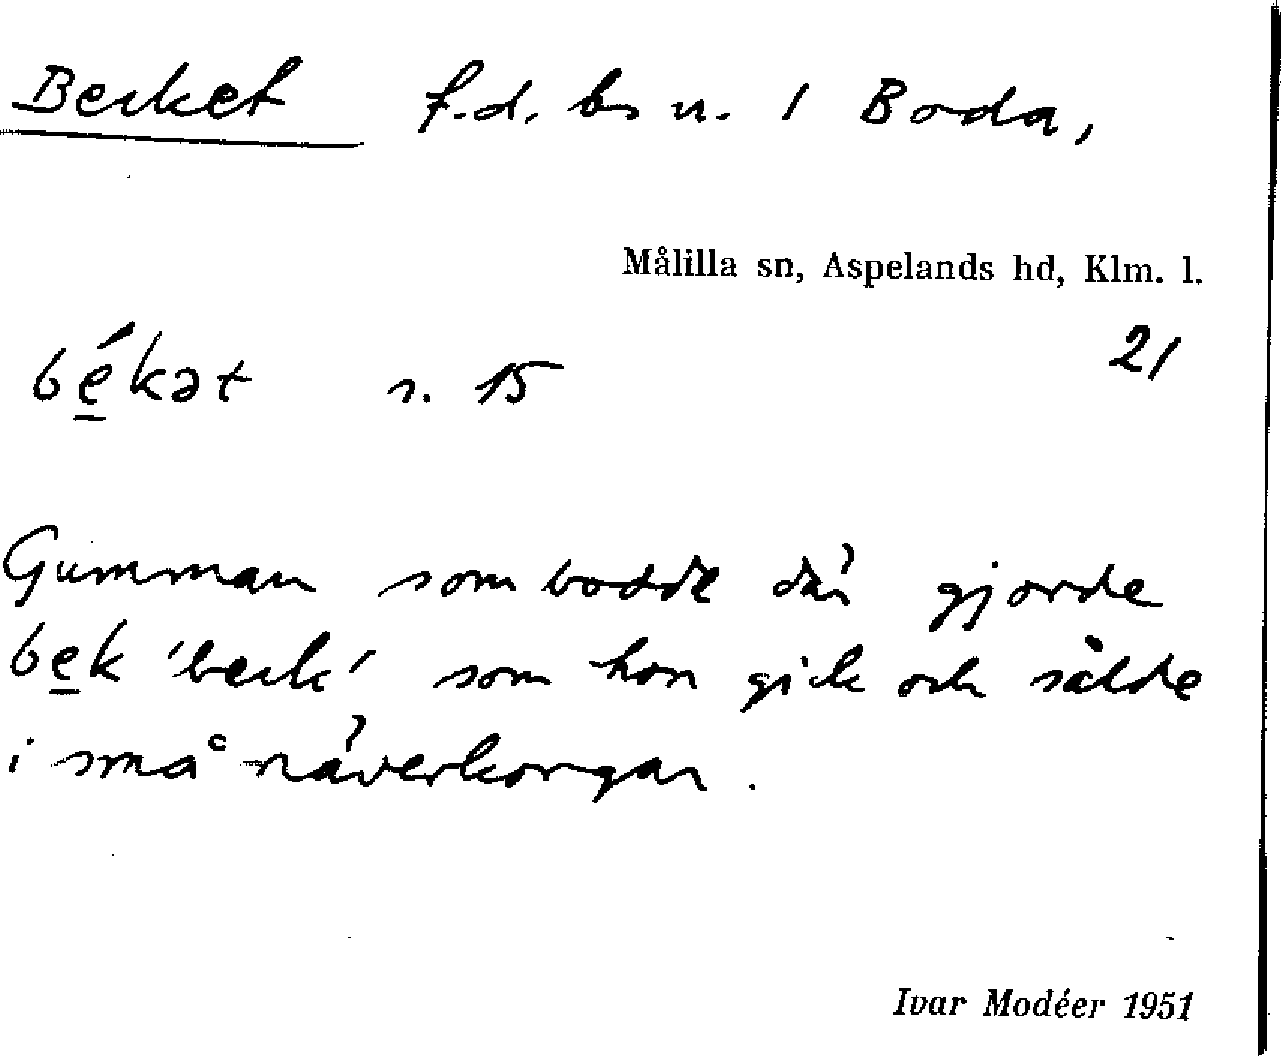 Becket f.d. bs u. 1 Boda,
Målilla sn, Aspelands hd, Klm. l.
21
bé̱kət s. 15
Gumman som bodde där gjorde
be̱k 'beck' som hon gick och sålde
i små näverkorgar.
Ivar Modéer 1951